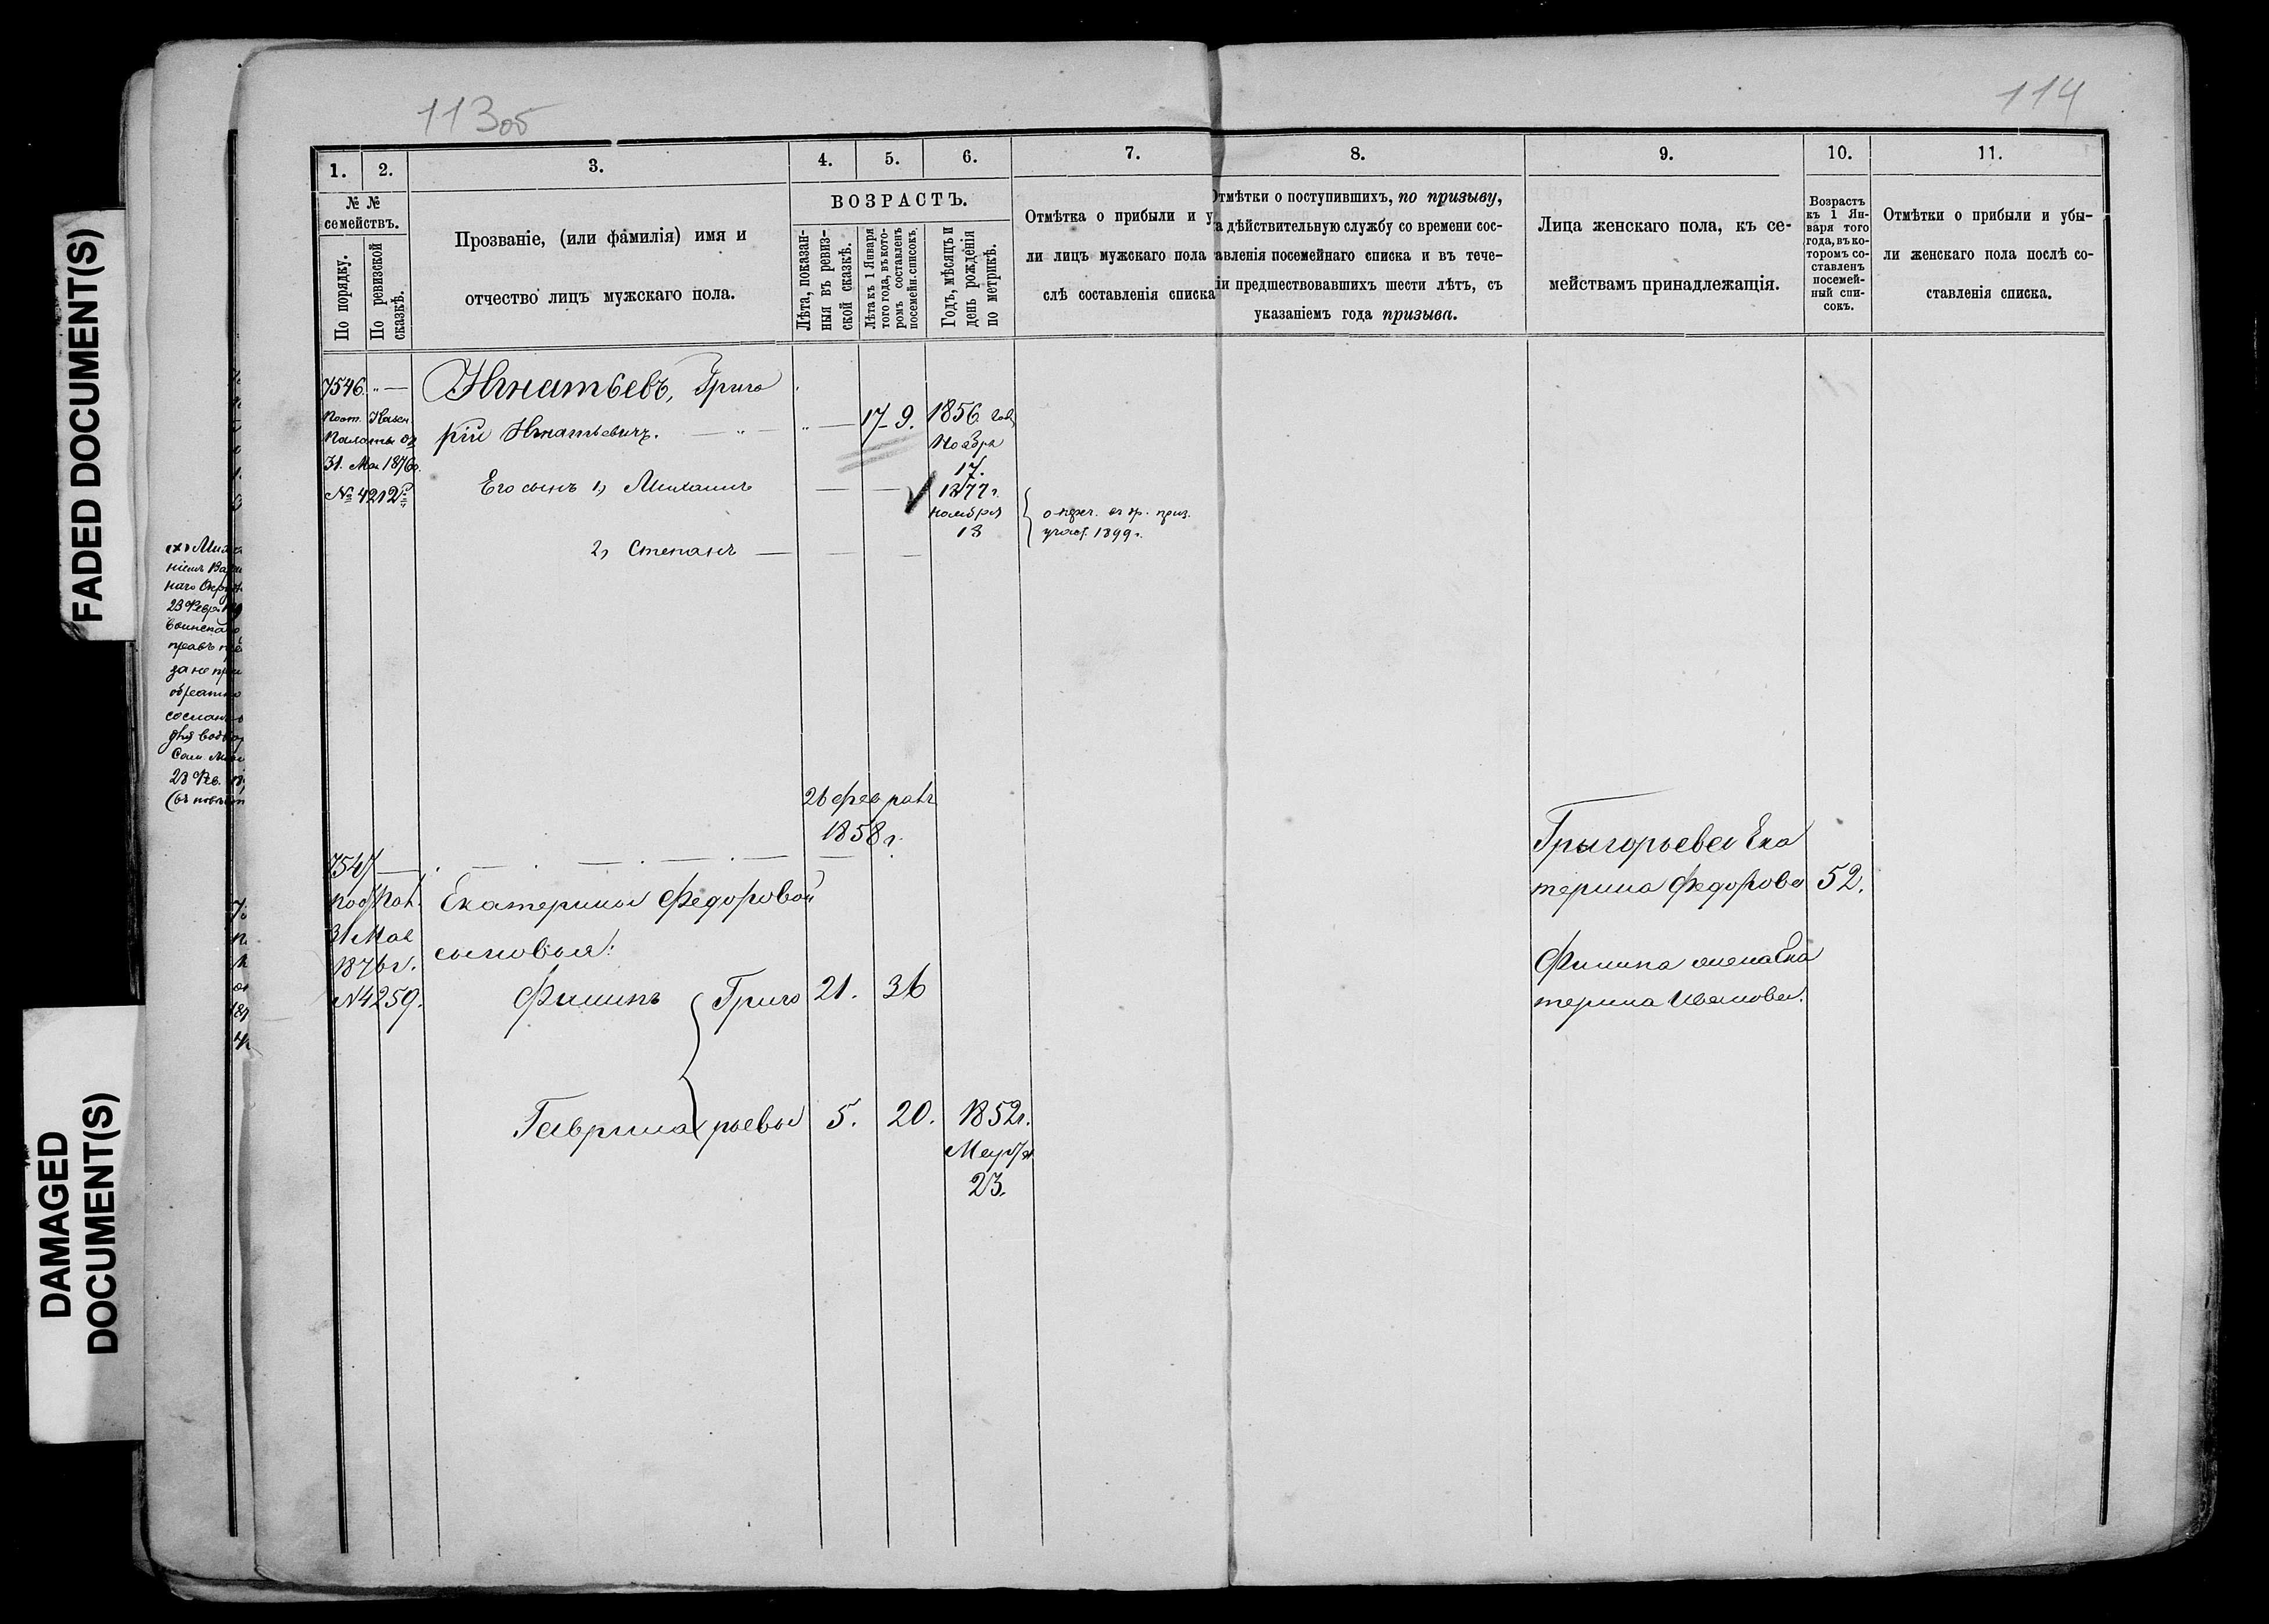 FADED DOCUMENT(S)
DAMAGED
DOCUMENT(S)
113об
114
1.
2.
3.
4.
5.
6.
7.
8.
9.
10.
11.
№ №
семействъ.
По порядку.
По ревизской
сказкѣ.
Прозваніе, (или фамилія) имя и
отчество лицъ мужскаго пола.
ВОЗРАСТЪ.
Лѣта, показан-
ныя въ ревиз-
ской сказкѣ.
Лѣта къ 1 Января
того года, въ кото-
ромъ составленъ
посемейн. списокъ.
Годъ, мѣсяцъ и
день рожденія
по метрикѣ.
Отмѣтка о прибыли и у
ли лицъ мужскаго пола
слѣ составленія списка
Отмѣтки о поступившихъ, по призыву,
а дѣйствительную службу со времени сос-
авленія посемейнаго списка и въ тече-
іи предшествовавшихъ шести лѣтъ, съ
указаніемъ года призыва.
Лица женскаго пола, къ се-
мействамъ принадлежащія.
Возрастъ
къ 1 Ян-
варя того
года, въ ко-
торомъ со-
ставленъ
посемей-
ный спи-
сокъ.
Отмѣтки о прибыли и убы-
ли женскаго пола послѣ со-
ставленія списка.
7546. „ —
Пост. Казен
Палаты от
31. Мая 1876г.
№ 4212
Игнатьевъ, Григо
рій Игнатьевичъ. — „ —
17 — 9.
1856 год
Ноября
17.
Его сынъ 1) Михаилъ — —
1877 г.
ноября
13
уч. 1899 г.
2) Степанъ — — —
26 февраля
1858 г.
7547 —
31 Мая
1876 г.
№ 4259.
Екатерины Федоровой
сыновья:
Филипъ
Григо
21.
36
Гаврила
рьевы
5.
20.
1852 г.
Марта
23.
Григорьева Ека
терина Федорова
52.
Филипа жена Ека
терина Иванова.